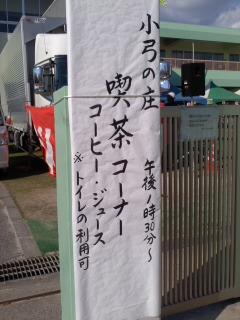 小弓の庄
喫茶コーナー
コーヒー・ジュース
※トイレの利用可
午後1時30分～